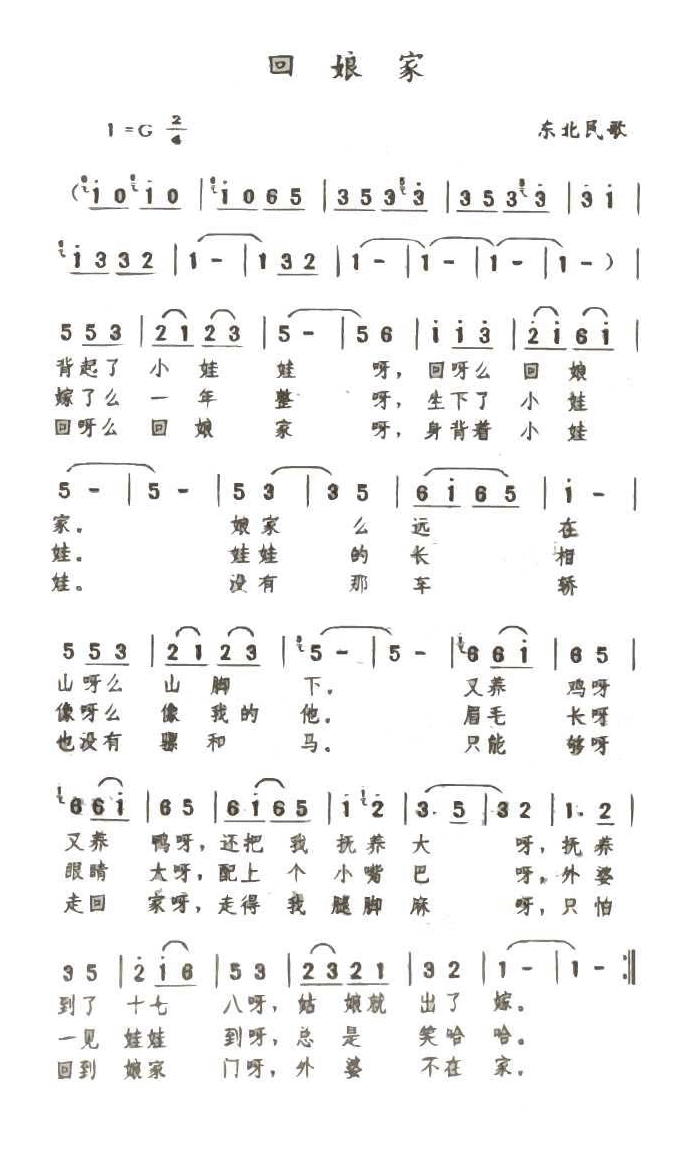 回娘家
1=G 2/4 东北民歌
(i0 i0 | i065 | 3533 | 3533 | 3i |
i332 | 1- | 132 | 1- | 1- | 1- | 1-) |
553 | 2123 | 5- | 56 | ii3 | 2i6i |
背起了小娃娃呀，回呀么回娘
嫁了么一年整呀，生下了小娃
回呀么回娘家呀，身背着小娃
5- | 5- | 53 | 35 | 6i65 | i- |
家。娘家么远在
娃。娃娃的长相
娃。没有那车轿
553 | 2123 | 5- | 5- | 66i | 65 |
山呀么山脚下。又养鸡呀
像呀么像我的他。眉毛长呀
也没有骡和马。只能够呀
66i | 65 | 6i65 | i2 | 3.5 | 32 | 1.2 |
又养鸭呀，还把我抚养大呀，抚养
眼睛大呀，配上个小嘴巴呀，外婆
走回家呀，走得我腿脚麻呀，只怕
35 | 2i6 | 53 | 2321 | 32 | 1- | 1- :||
到了十七八呀，姑娘就出了嫁。
一见娃娃到呀，总是笑哈哈。
回到娘家门呀，外婆不在家。